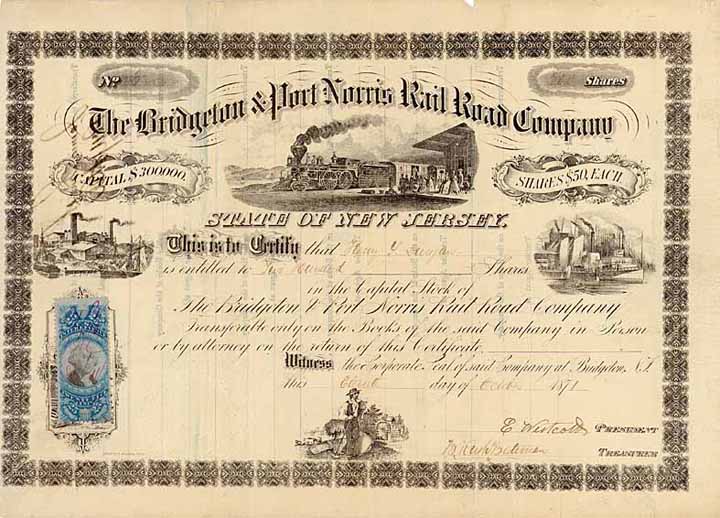 No.
Shares
The Bridgeton & Port Norris Rail Road Company
CAPITAL $300000.
SHARES $50, EACH.
STATE OF NEW JERSEY.
This is to Certify that
is entitled to Two Hundred Shares
in the Capital Stock of
The Bridgeton & Port Norris Rail Road Company
Transferable only on the Books of the said Company in Person
or by attorney on the return of this Certificate.
Witness the Corporate Seal of said Company at Bridgeton, N.J.
this day of 1871
E. Westcott PRESIDENT
TREASURER